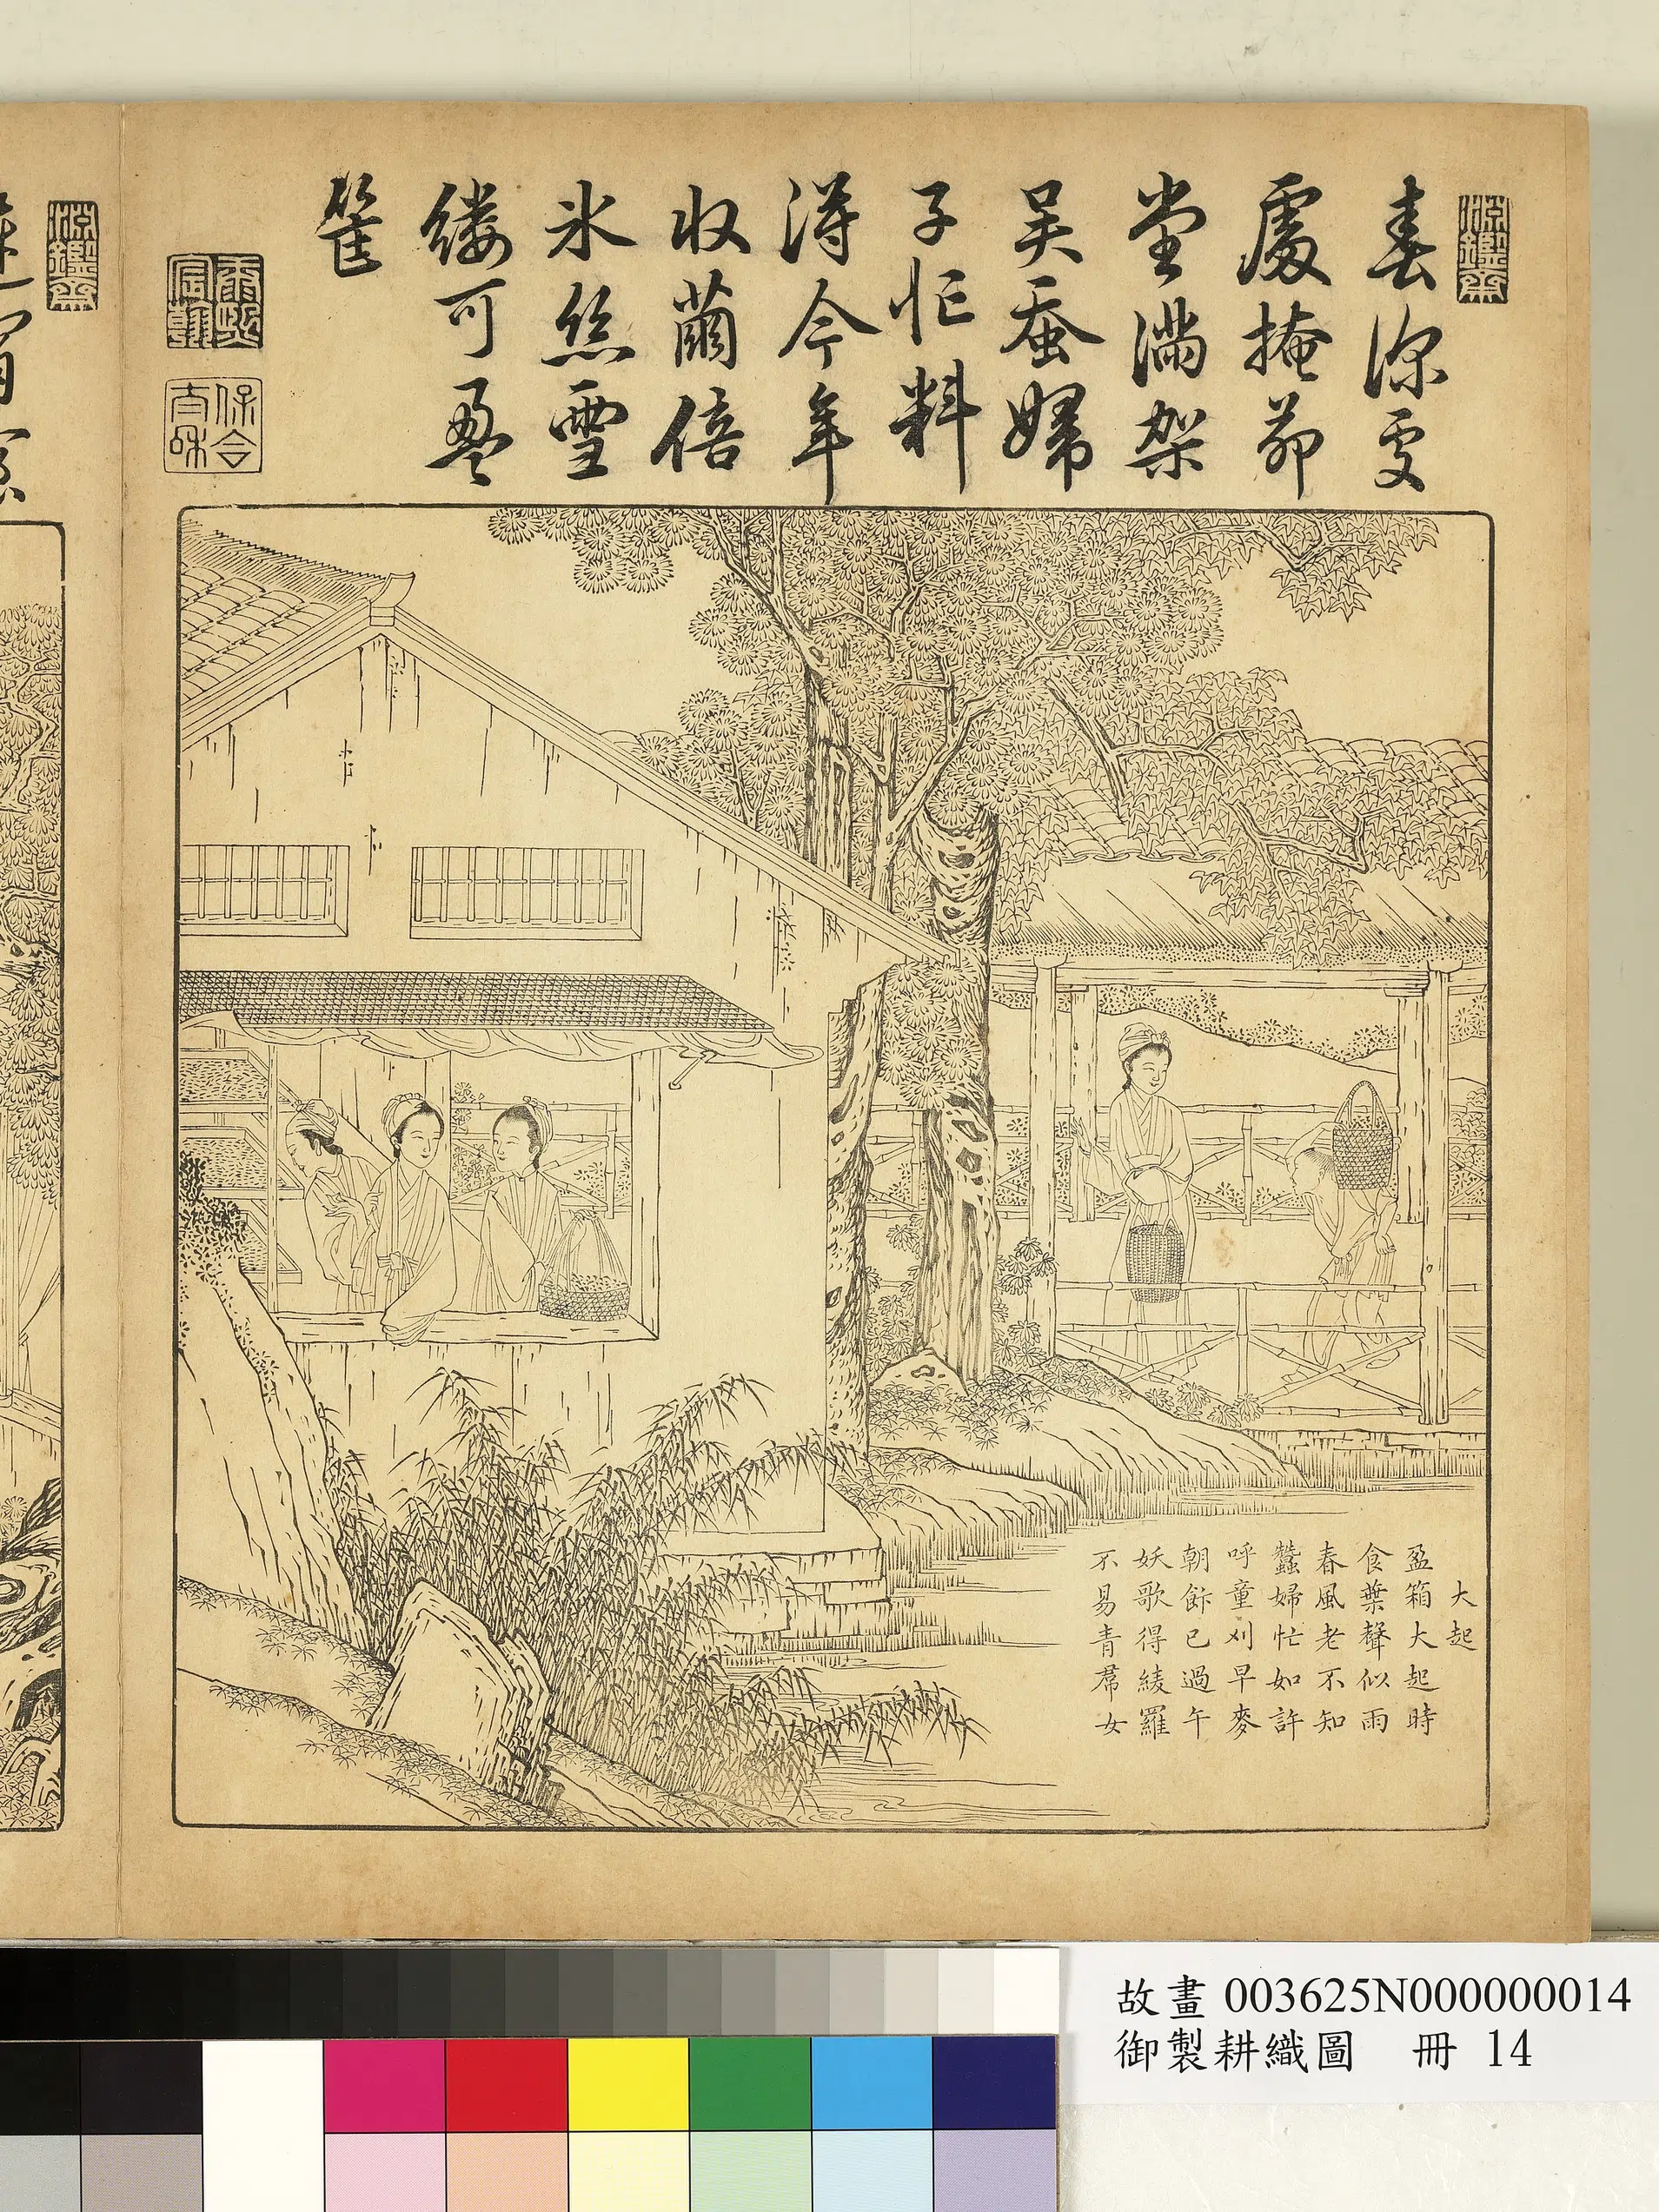 淵鑑齋
春深處
處掩茆
堂滿架
吳蚕婦
子忙料
得今年
收繭倍
氷絲雪
縷可盈
筐
康熙宸翰
保合太和
大起
盈箱大起時
食葉聲似雨
春風老不知
蠶婦忙如許
呼童刈早麥
朝飰已過午
妖歌得綾羅
不易青帬女
淵鑑齋
故畫 003625N000000014
御製耕織圖 冊 14